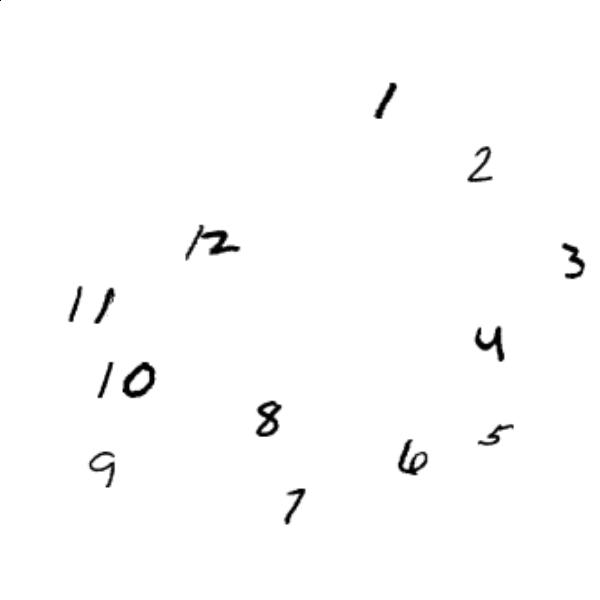 1
2
12
3
11
4
10
8
5
6
9
7